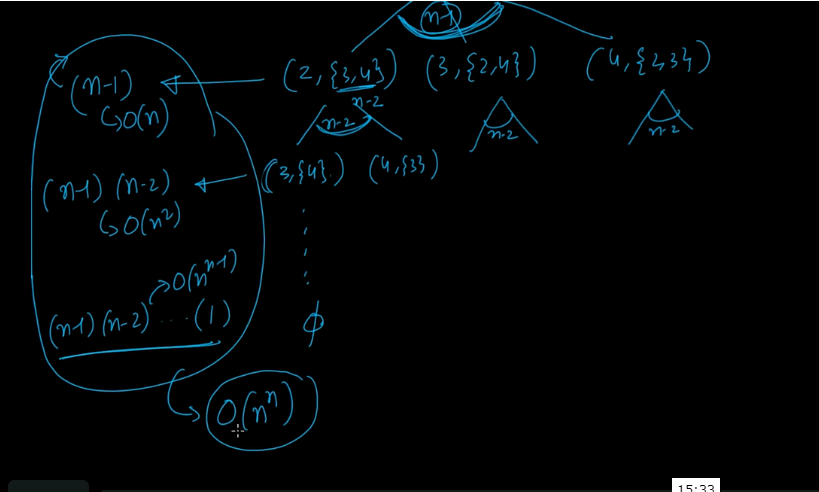 n-1
(n-1) (2, {3,4}) (3, {2,4}) (4, {2,3})
↳ O(n) n-2
n-2 n-2 n-2
(n-1) (n-2) (3, {4}) (4, {3})
↳ O(n²)
→ O(n^{n-1})
(n-1) (n-2) ... (1) ϕ
O(n^n)
15:33